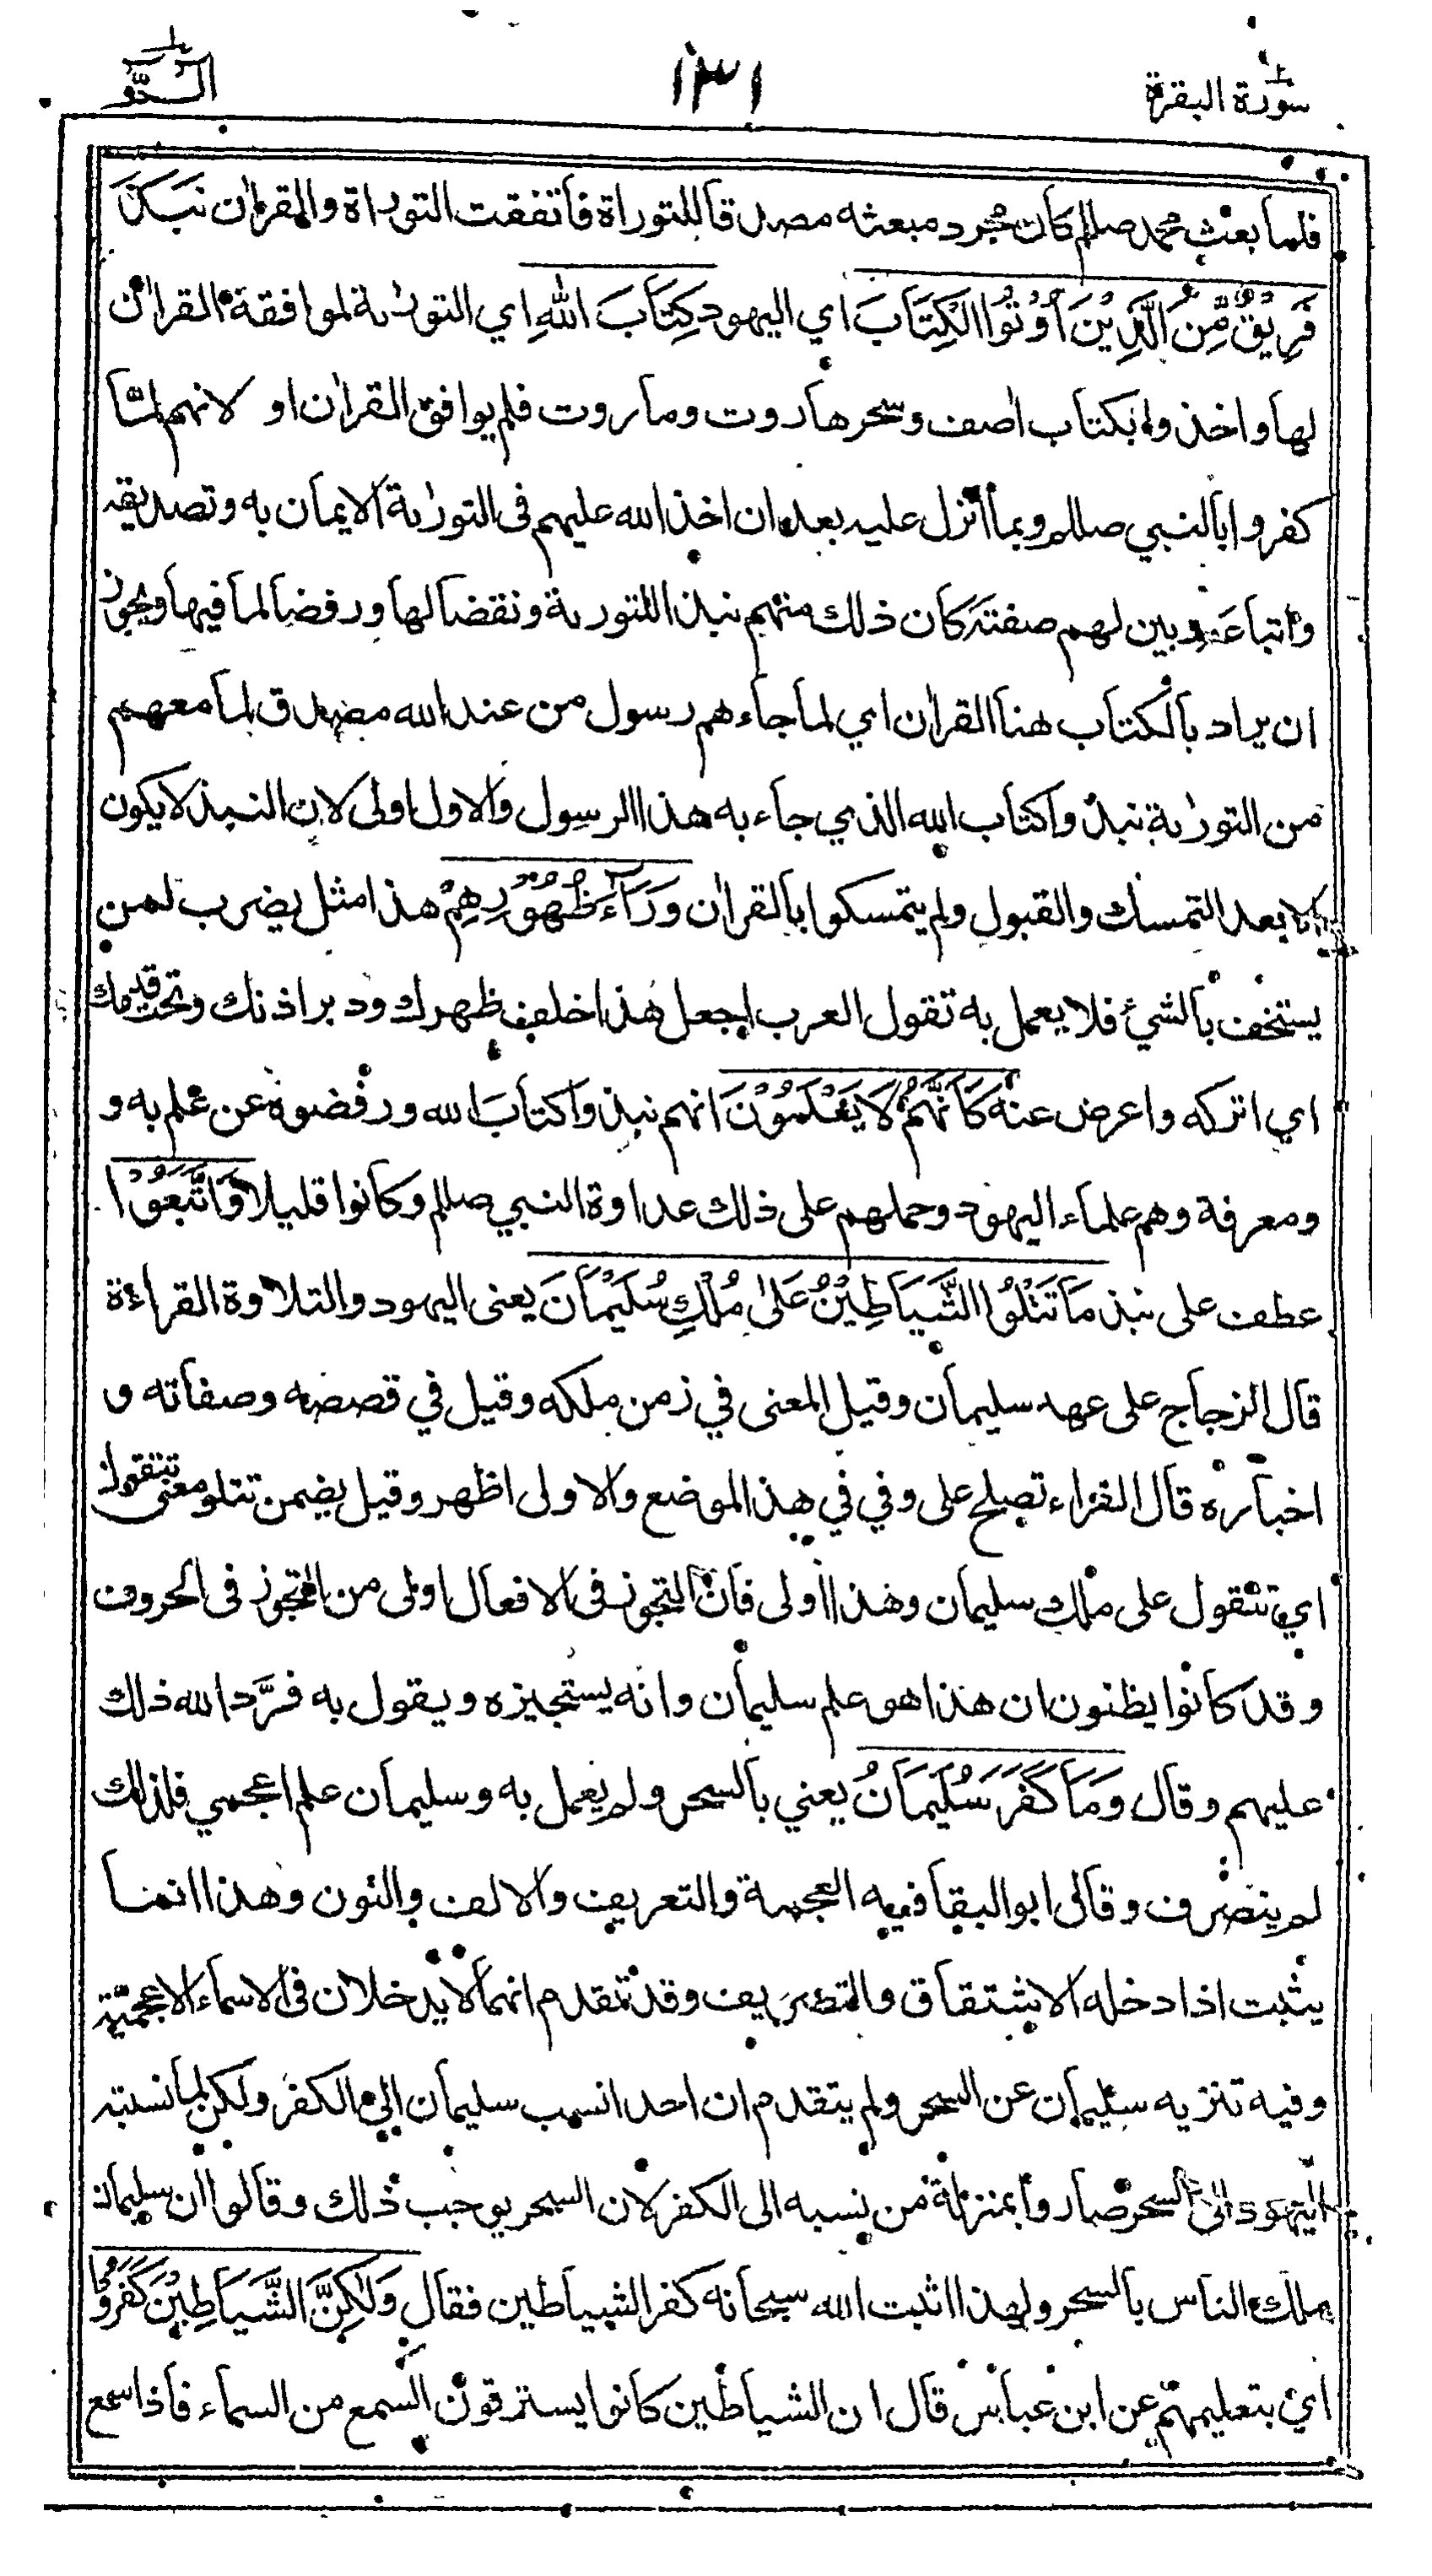 سورة البقرة ١٣١ الٓمّٓ
فلما بعث محمد صللم كان مجرد مبعثه مصدقا للتوراة فاتفقت التوراة والقرءان نَبَذَ
فَرِيْقٌ مِّنَ الَّذِيْنَ اُوْتُوا الْكِتَابَ اي اليهود كِتَابَ اللهِ اي التورٰىة لموافقة القراٰن
لها واخذوا بكتاب اٰصف وسحر هاروت وماروت فلم يوافق القراٰن او لانهم لما
كفروا بالنبي صللم وبما أنزل عليه بعد ان اخذ الله عليهم فى التورٰىة الايمان به وتصديقه
واتباعه وبين لهم صفته كان ذلك منهم نبذا للتورىة ونقضا لها ورفضا لما فيها ويجوز
ان يراد بالكتاب هنا القراٰن اي لما جاءهم رسول من عند الله مصدق لما معهم
من التورٰىة نبذوا كتاب الله الذي جاء به هذا الرسول والاول اولى لان النبذ لا يكون
الا بعد التمسك والقبول ولم يتمسكوا بالقراٰن وَرَاۤءَ ظُهُوْرِهِمْ هذا مثل يضرب لمن
يستخف بالشئ فلا يعمل به تقول العرب اجعل هذا خلف ظهرك ودبر اذنك وتحت قدمك
اي اتركه واعرض عنه كَاَنَّهُمْ لَا يَعْلَمُوْنَ انهم نبذوا كتاب الله ورفضوه عن علم به و
ومعرفة وهم علماء اليهود وحملهم على ذلك عداوة النبي صللم وكانوا قليلا وَاتَّبَعُوْا
عطف على نبذ مَا تَتْلُوا الشَّيَاطِيْنُ عَلٰى مُلْكِ سُلَيْمَانَ يعنى اليهود والتلاوة القراءة
قال الزجاج على عهد سليمان وقيل المعنى في زمن ملكه وقيل في قصصه وصفاته و
اخباره قال الفراء تصلح على وفي في هذا الموضع والاول اظهر وقيل يضمن تتلو معنى تتقول
اي تتقول على ملك سليمان وهذا اولى فان التجوز فى الافعال اولى من التجوز فى الحروف
وقد كانوا يظنون ان هذا هو علم سليمان وانه يستجيزه ويقول به فردَّ الله ذلك
عليهم وقال وَمَا كَفَرَ سُلَيْمَانُ يعني بالسحر ولم يعمل به وسليمان علم اعجمي فلذلك
لم ينصرف وقال ابو البقا فيه العجمة والتعريف والالف والنون وهذا انما
يثبت اذا دخله الاشتقاق والتصريف وقد تقدم انهما لا يدخلان فى الاسماء الاعجميّة
وفيه تنزيه سليمان عن السحر ولم يتقدم ان احدا نسب سليمان الى الكفر ولكن لما نسبته
اليهود الى السحر صاروا بمنزلة من نسبه الى الكفر لان السحر يوجب ذلك وقالوا ان سليمان
ملك الناس بالسحر ولهذا اثبت الله سبحانه كفر الشياطين فقال وَلٰكِنَّ الشَّيَاطِيْنَ كَفَرُوْا
اي بتعليمهم عن ابن عباس قال ان الشياطين كانوا يسترقون السمع من السماء فاذا سمع